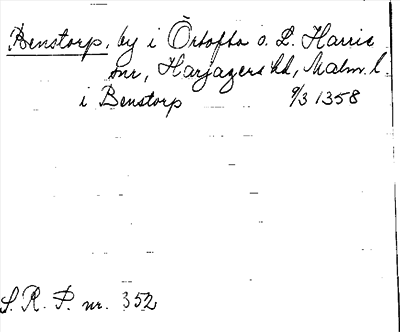 Benstorp, by i Örtofta o. L. Harrie
snr, Harjagers hd, Malm. l.
i Benstorp 9/3 1358
S. R. P. nr. 352